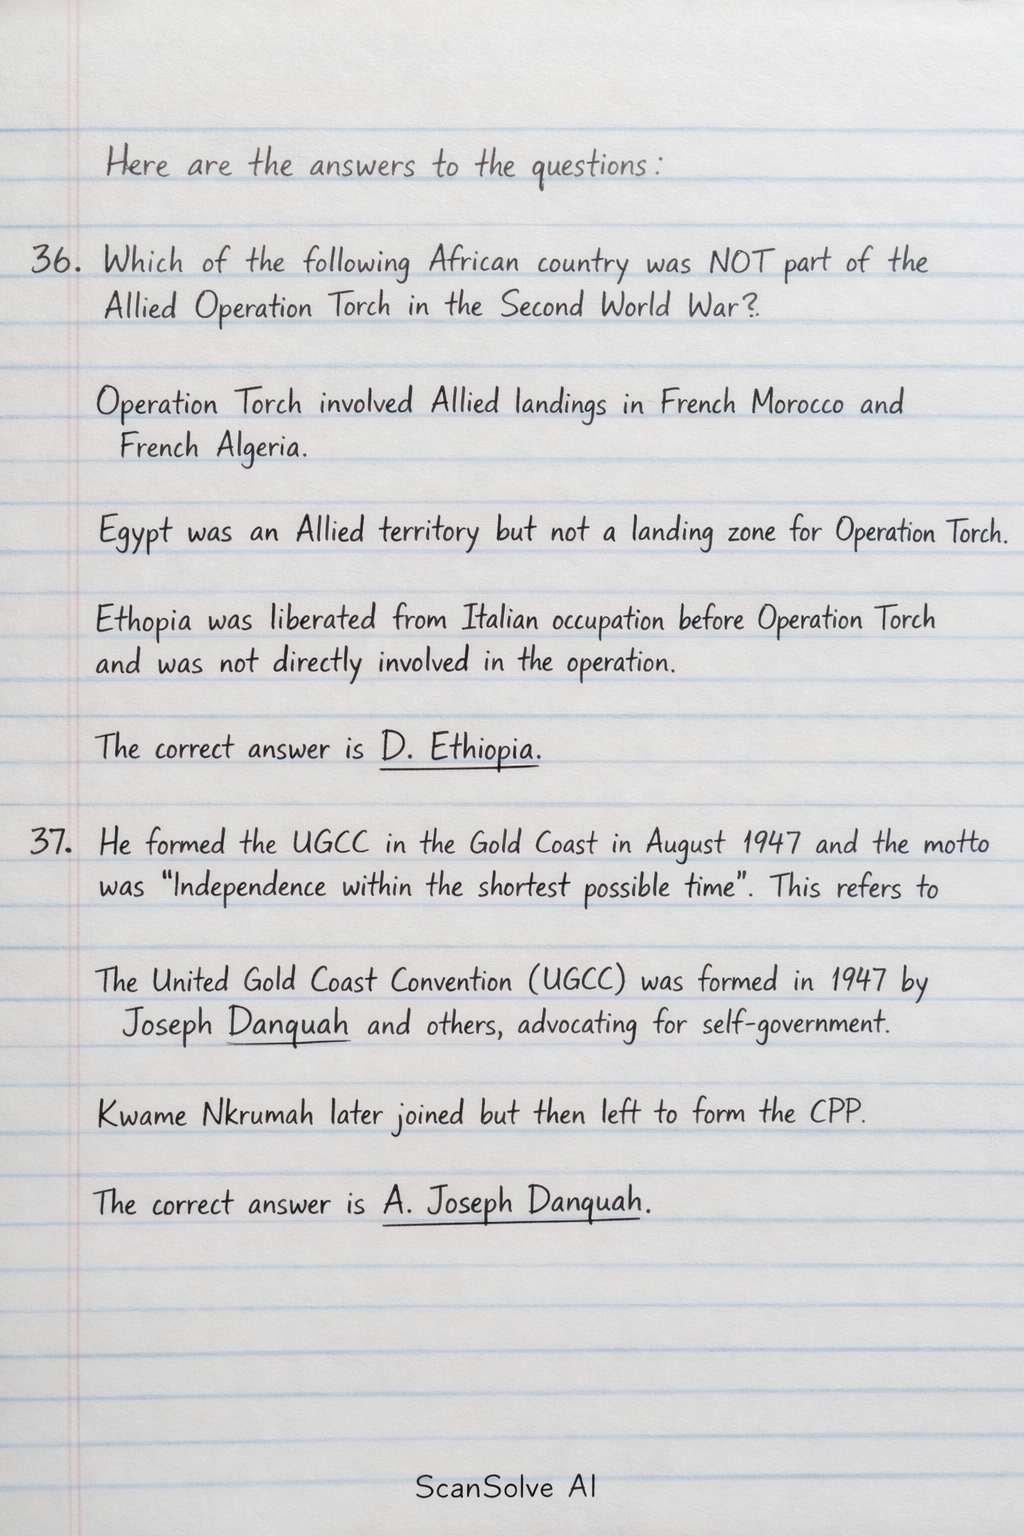 Here are the answers to the questions:
36. Which of the following African country was NOT part of the
Allied Operation Torch in the Second World War?
Operation Torch involved Allied landings in French Morocco and
French Algeria.
Egypt was an Allied territory but not a landing zone for Operation Torch.
Ethopia was liberated from Italian occupation before Operation Torch
and was not directly involved in the operation.
The correct answer is D. Ethiopia.
37. He formed the UGCC in the Gold Coast in August 1947 and the motto
was "Independence within the shortest possible time". This refers to
The United Gold Coast Convention (UGCC) was formed in 1947 by
Joseph Danquah and others, advocating for self-government.
Kwame Nkrumah later joined but then left to form the CPP.
The correct answer is A. Joseph Danquah.
ScanSolve AI